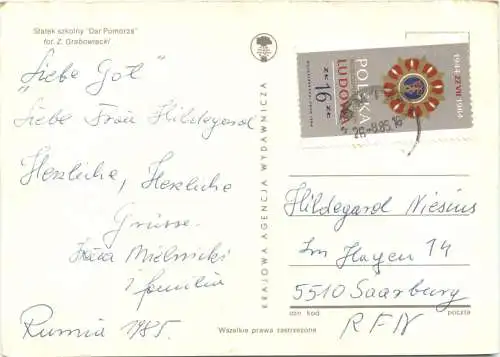 Statek szkolny "Dar Pomorza"
fot. Z. Grabowiecki
"Liebe Got"
Liebe Frau Hildegard
Herzliche, Herzliche
Grüsse.
Mielnicki
i familia
Rumia 1985.
KRAJOWA AGENCJA WYDAWNICZA
1944·22VII·1984
POLSKA
LUDOWA
ZŁ 16 ZŁ
26.-8.85.16
Hildegard Niesius
Im Hagen 14
5510 Saarburg
ozn. kod.
poczta
RFN
Wszelkie prawa zastrzeżone